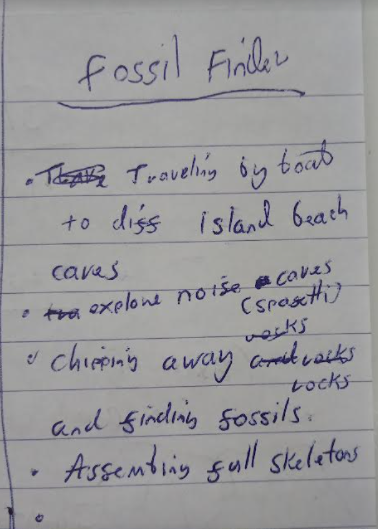 Fossil Finder
• Traveling by boat
to diff island beach
caves
• explore noise caves
(spagetti)
• Chipping away rocks
rocks
and finding fossils.
• Assembling full skeletons
•